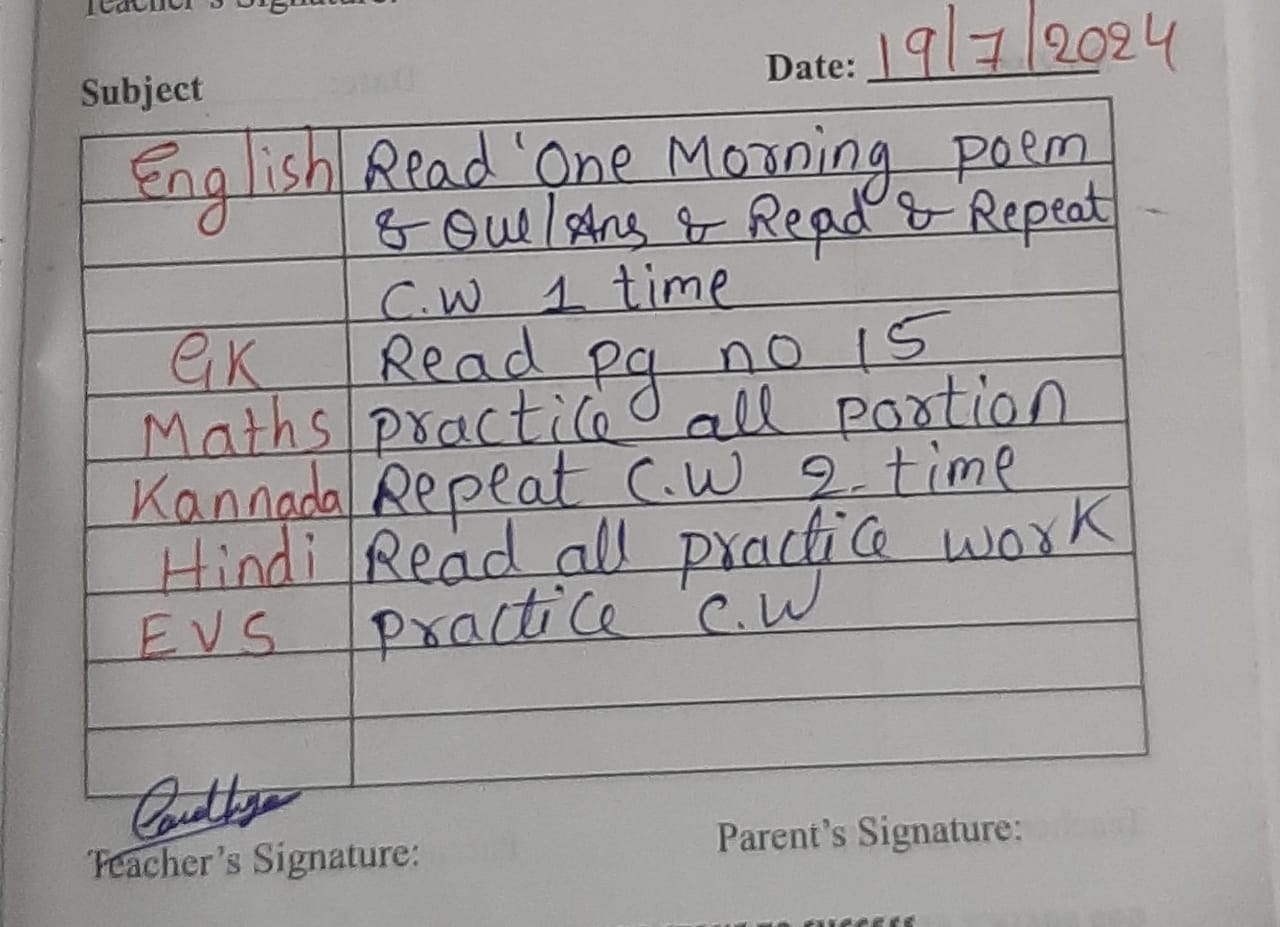 Teacher's Signature:
Date: 19/7/2024
Subject
English Read 'One Morning poem
& Que/Ans & Read & Repeat
C.W 1 time
GK Read pg no 15
Maths practice all portion
Kannada Repeat C.W 2 time
Hindi Read all practice work
EVS practice C.W
Teacher's Signature:
Parent's Signature:
success